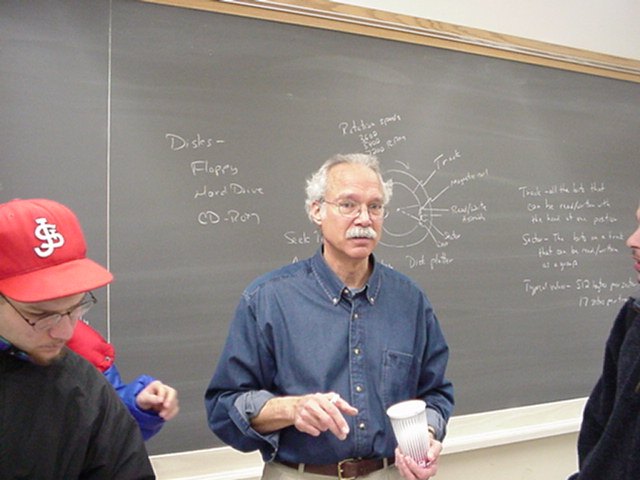 Disks-
Floppy
Hard Drive
CD-ROM
Rotation speeds
3600
7200 RPM
Track
Read/write
Sector
Disk platter
Seek
Track - all the bits that
can be read/written with
the head at one position
Sector - The bits on a track
that can be read/written
as a group
Typical value - 512 bytes per
17
STL